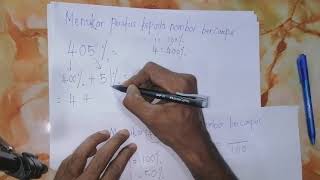 Menukar peratus kepada nombor bercampur
1 = 100%
405% =
4 = 400%
400% + 5%
= 4 +
nombor bercampur
100
= 100%
= 50%